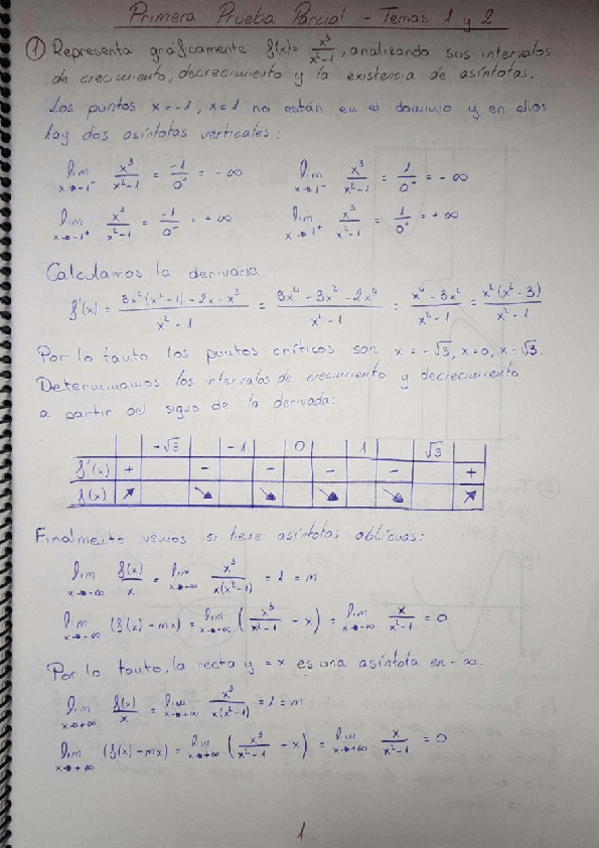 Primera Prueba Parcial - Temas 1 y 2
① Representa gráficamente f(x)= x³/(x²-1), analizando sus intervalos
de crecimiento, decrecimiento y la existencia de asíntotas.
Los puntos x=-1, x=1 no están en el dominio y en ellos
hay dos asíntotas verticales:
lim x→-1⁻ x³/(x²-1) = -1/0⁺ = -∞ lim x→1⁻ x³/(x²-1) = 1/0⁻ = -∞
lim x→-1⁺ x³/(x²-1) = -1/0⁻ = +∞ lim x→1⁺ x³/(x²-1) = 1/0⁺ = +∞
Calculamos la derivada
f'(x) = (3x²(x²-1)-2x·x³)/(x²-1) = (3x⁴-3x²-2x⁴)/(x²-1) = (x⁴-3x²)/(x²-1) = x²(x²-3)/(x²-1)
Por lo tanto los puntos críticos son x=-√3, x=0, x=√3.
Determinamos los intervalos de crecimiento y decrecimiento
a partir del signo de la derivada:
-√3 -1 0 1 √3
f'(x) + - - - - +
f(x) ↗ ↘ ↘ ↘ ↘ ↗
Finalmente vemos si tiene asíntotas oblicuas:
lim x→-∞ f(x)/x = lim x→-∞ x³/(x(x²-1)) = 1 = m
lim x→-∞ (f(x)-mx) = lim x→-∞ (x³/(x²-1) - x) = lim x→-∞ x/(x²-1) = 0
Por lo tanto, la recta y=x es una asíntota en -∞.
lim x→+∞ f(x)/x = lim x→+∞ x³/(x(x²-1)) = 1 = m
lim x→+∞ (f(x)-mx) = lim x→+∞ (x³/(x²-1) - x) = lim x→+∞ x/(x²-1) = 0
1